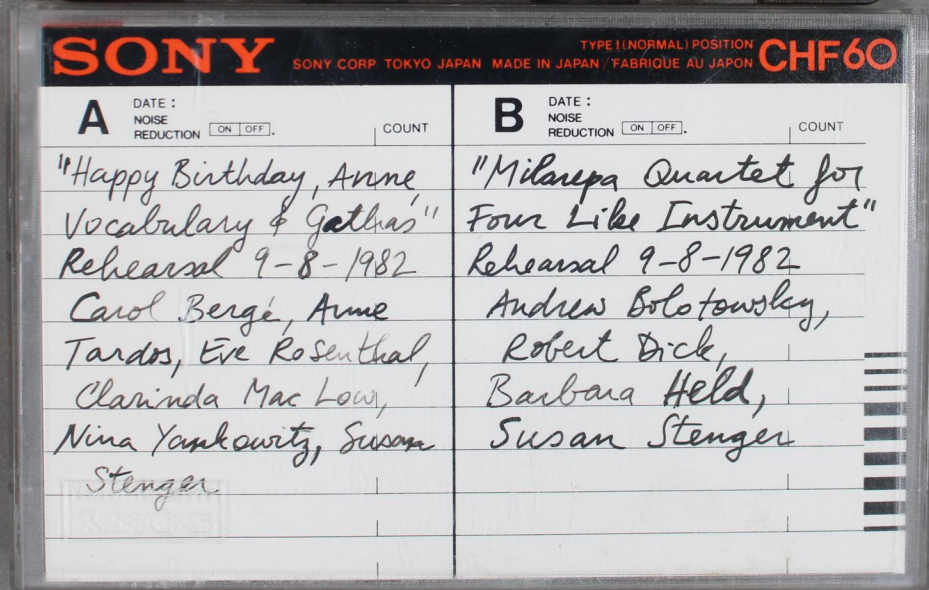 SONY
TYPE I (NORMAL) POSITION
SONY CORP TOKYO JAPAN MADE IN JAPAN / FABRIQUE AU JAPON
CHF60
A
DATE :
NOISE
REDUCTION ON OFF .
COUNT
"Happy Birthday, Anne,
Vocabulary & Gathas"
Rehearsal 9-8-1982
Carol Bergé, Anne
Tardos, Eve Rosenthal,
Clarinda Mac Low,
Nina Yankowitz, Susan
Stenger.
B
DATE :
NOISE
REDUCTION ON OFF .
COUNT
"Milarepa Quartet for
Four Like Instrument"
Rehearsal 9-8-1982
Andrew Bolotowsky,
Robert Dick,
Barbara Held,
Susan Stenger